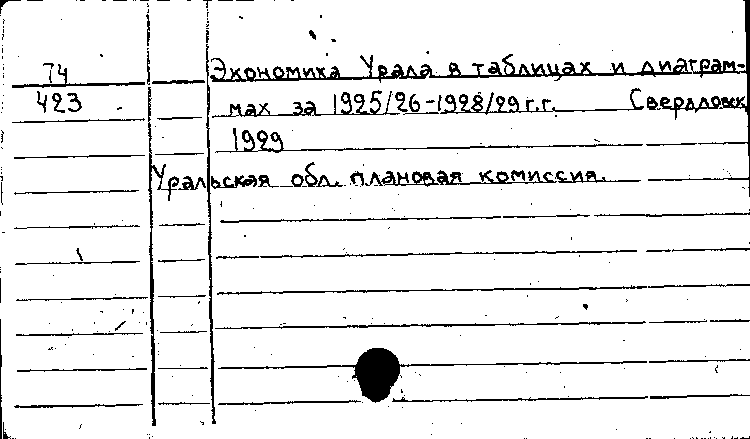 74 Экономика Урала в таблицах и диаграм-
423 мах за 1925/26-1928/29 г.г. Свердловск
1929
Уральская обл. плановая комиссия.